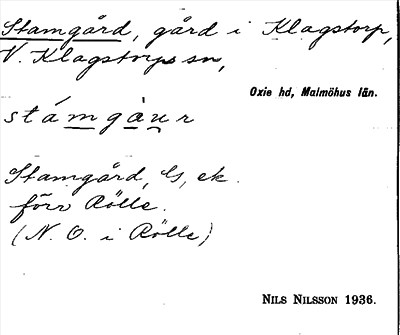 Stamgård, gård i Klagstorp,
V. Klagstorps sn,
Oxie hd, Malmöhus län.
stámgàur
Stamgård, Gs, ek.
förr Rölle.
(N. O. i Rölle)
NILS NILSSON 1936.